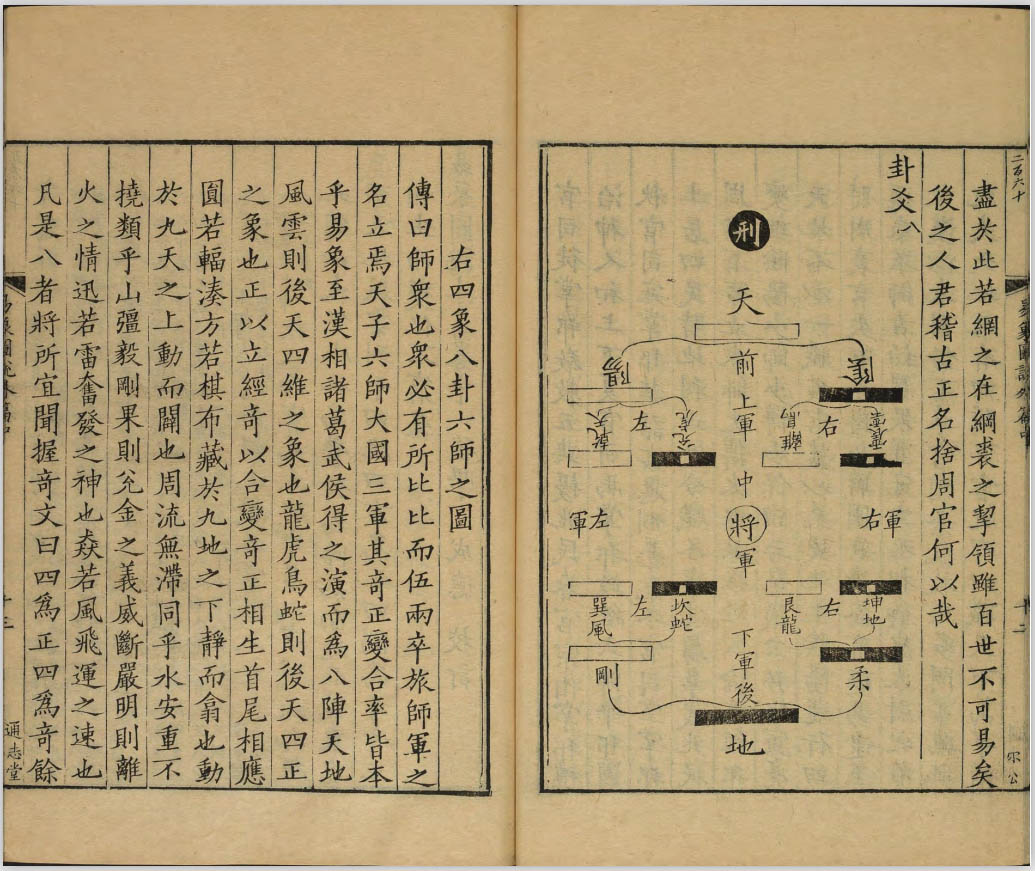 二百六十
易象圖說外篇中
十二
盡於此若網之在綱裘之挈領雖百世不可易矣
後之人君稽古正名捨周官何以哉
卦爻八
刑
天
前
上
軍
中
將
軍
下
軍
後
地
陰
陽
右
震雲
離鳥
左
兌虎
乾天
右軍
左軍
右
坤地
艮龍
左
坎蛇
巽風
柔
剛
右四象八卦六師之圖
傳曰師衆也衆必有所比比而伍兩卒旅師軍之
名立焉天子六師大國三軍其奇正變合率皆本
乎易象至漢相諸葛武侯得之演而爲八陣天地
風雲則後天四維之象也龍虎鳥蛇則後天四正
之象也正以立經奇以合變奇正相生首尾相應
圓若輻湊方若棋布藏於九地之下靜而翕也動
於九天之上動而闢也周流無滯同乎水安重不
撓類乎山彊毅剛果則兊金之義威斷嚴明則離
火之情迅若雷奮發之神也猋若風飛運之速也
凡是八者將所宜聞握奇文曰四爲正四爲奇餘
易象圖說外篇中
十三
通志堂